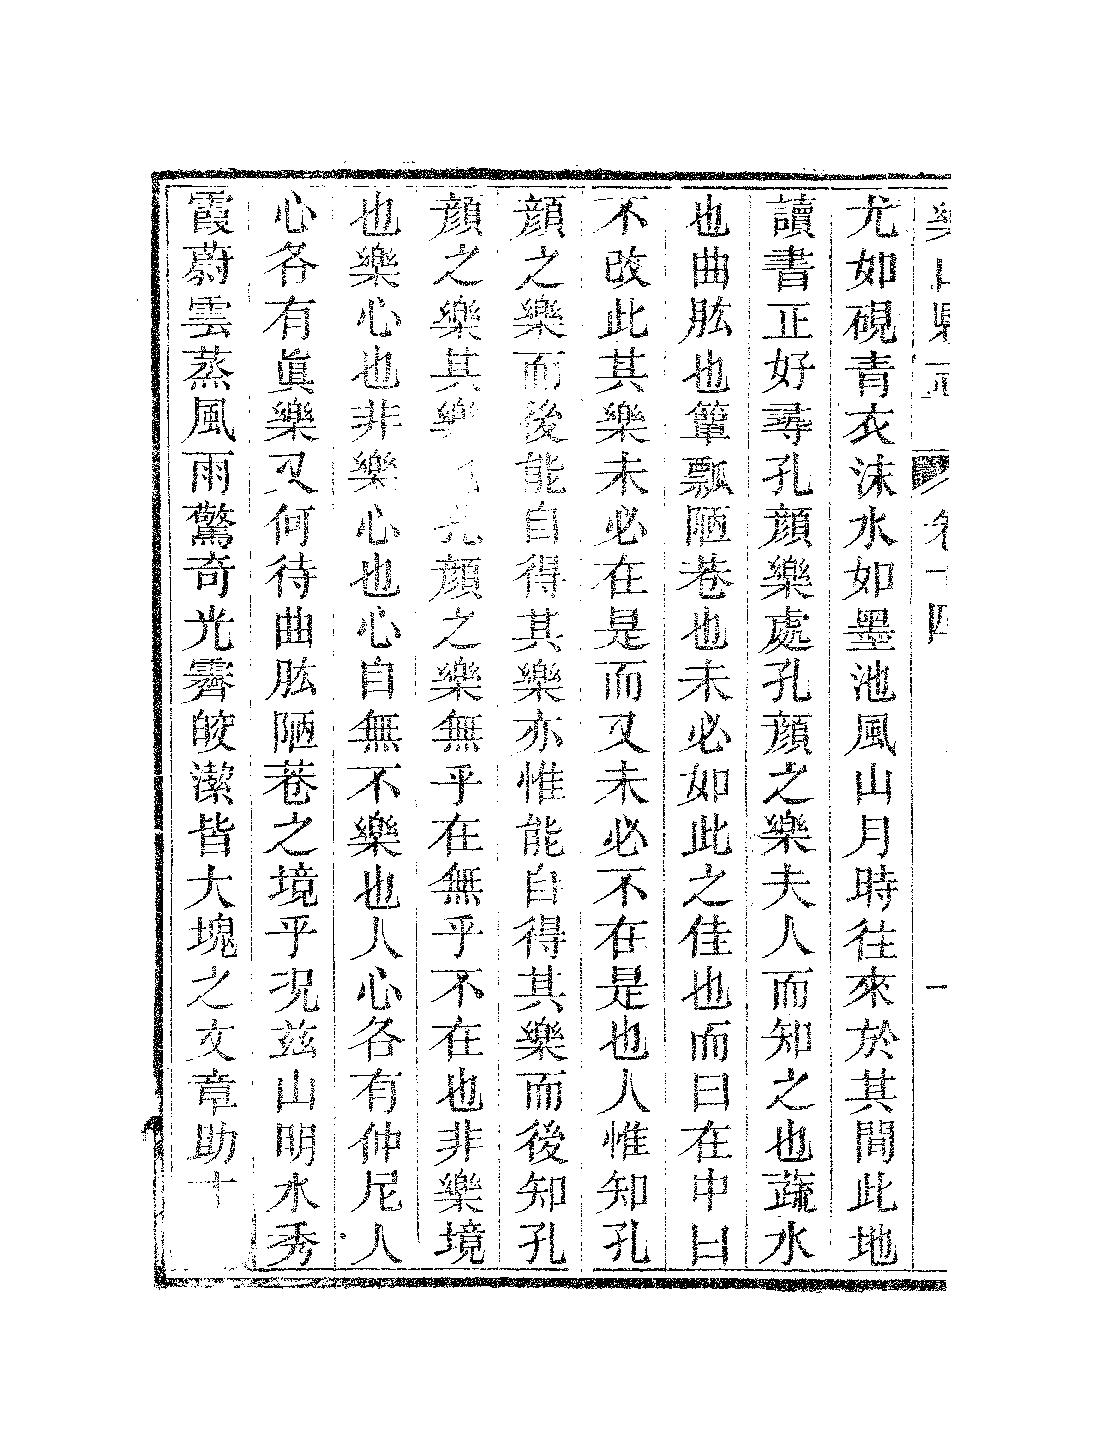 樂山縣志 卷十四 一
尤如硯青衣沫水如墨池風山月時往來於其間此地
讀書正好尋孔顏樂處孔顏之樂夫人而知之也蔬水
也曲肱也簞瓢陋巷也未必如此之佳也而曰在中曰
不改此其樂未必在是而又未必不在是也人惟知孔
顏之樂而後能自得其樂亦惟能自得其樂而後知孔
顏之樂其樂孔顏之樂無乎在無乎不在也非樂境
也樂心也非樂心也心自無不樂也人心各有仲尼人
心各有眞樂又何待曲肱陋巷之境乎況茲山明水秀
霞蔚雲蒸風雨驚奇光霽皎潔皆大塊之文章助